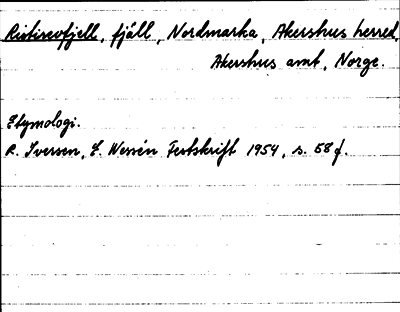 Ristiseofjell, fjäll, Nordmarka, Akershus herred,
Akershus amt, Norge.
Etymologi.
R. Iversen, E. Wessén Festskrift 1954, s. 58 f.